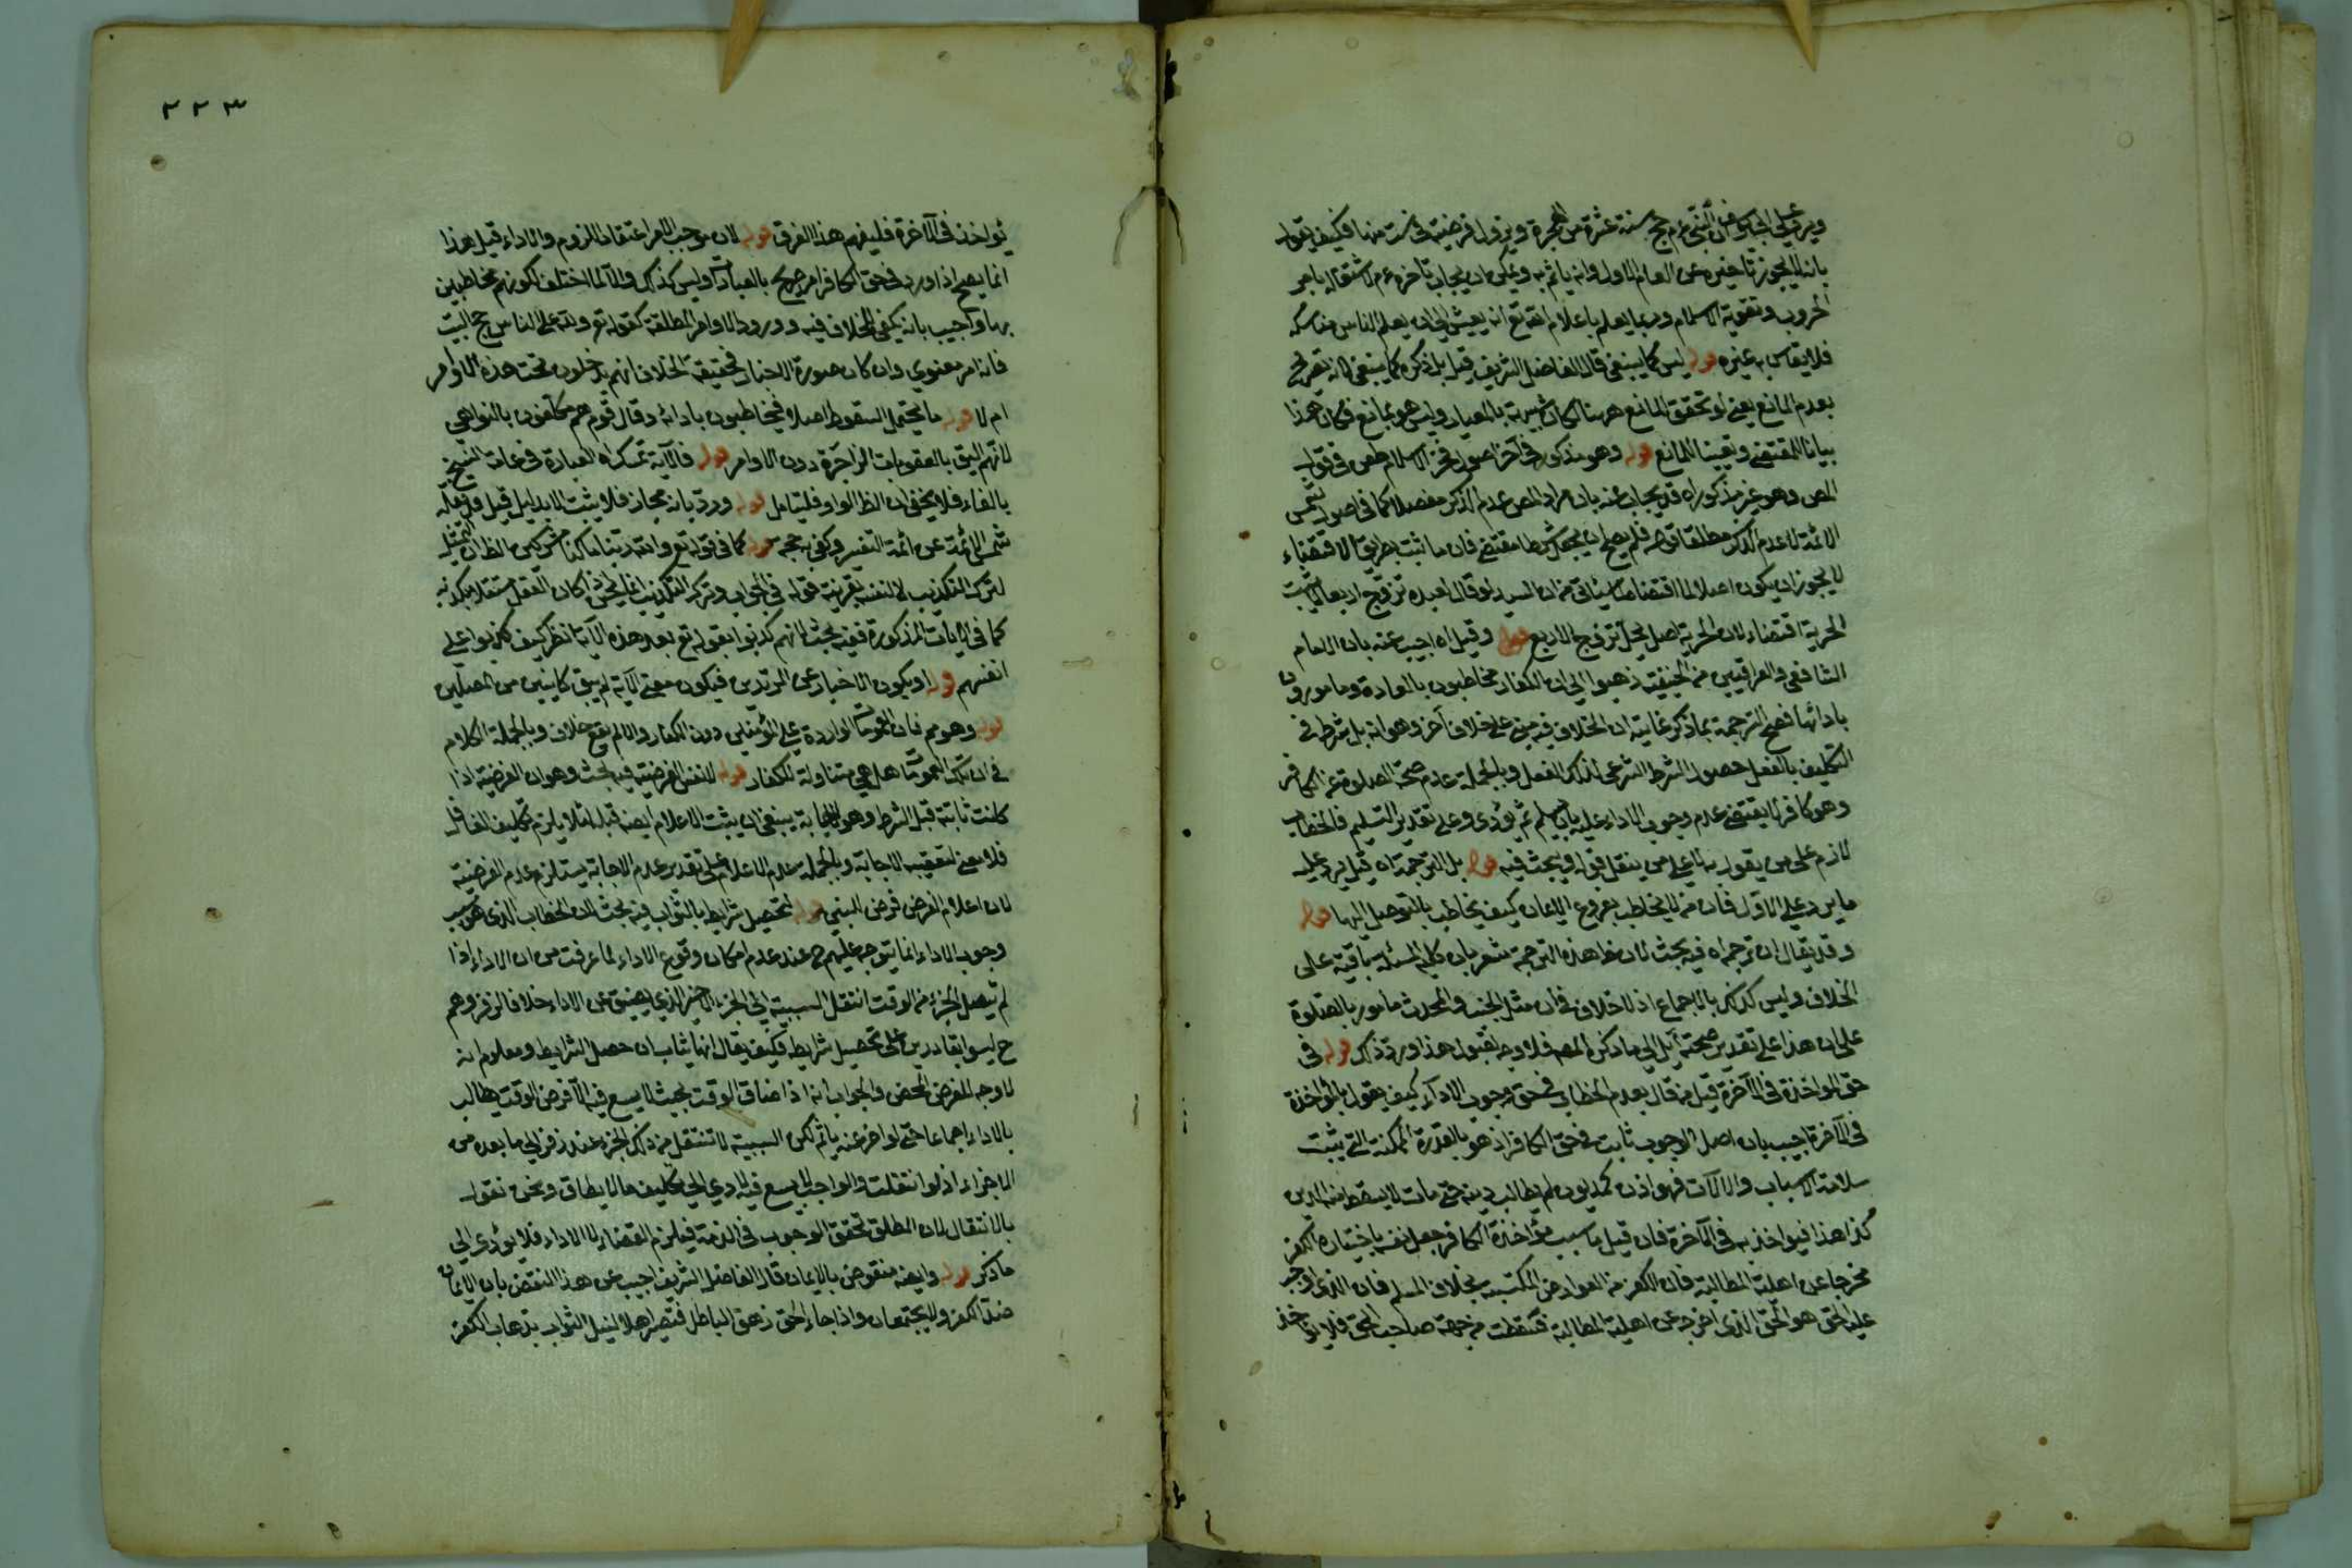 بانه لا يجوز تاخيره عن العام الاول وانه ياثم به ويمكن ان يجاب تاخره عم لاشتغاله بامر
الحروب وتقوية الاسلام وربما يعلم باعلام الله تع انه يعيش الى ان يعلم الناس مناسكه
فلا يقاس به غيره قوله ليس كما ينبغي قال الفاضل الشريف قيل بل ذكره كما ينبغي لانه تصريح
بعدم المانع يعني لو تحقق المانع ههنا لكان شبيه بالمعيار وليس هو بمانع فكان هذا
بيانا للمقتضى وتعيينا للمانع قوله وهو مذكور في آخر اصول فخر الاسلام
المص وهو غير مذكور اه قد يجاب عنه بان مراد المص عدم الذكر مفصلا كما في اصول شمس
الائمة لا عدم الذكر مطلقا قوله فلم يصلح ان يجعل شرطا مقتضى فان ما ثبت بطريق الاقتضاء
لا يجوز ان يكون اصلا لما اقتضاه من ان السيد لو قال لعبده تزوج اربعا لا يثبت
الحرية اقتضاء لان الحرية اصل يحل تزوج الاربع قوله وقيل اه اجيب عنه بان الامام
الشافعي والعراقيين من الحنفية ذهبوا الى ان الكفار مخاطبون بالعبادة ومامورون
بادائها فصح الترجمة بما ذكر غايته ان الخلاف فيه مبني على خلاف آخر وهو انه بل شرط في
التكليف بالفعل حصول الشرط الشرعي لذلك الفعل وبالجملة عدم صحة الصلوة من الكافر
وهو كافر لا يقتضى عدم وجوب الاداء عليه بان يسلم ثم يؤدى وعلى تقدير التسليم فالخطاب
لازم على من يقول به لا على من ينقل قوله ويبحث فيه قوله بل الترجمة اه قيل يرد عليه
ما يرد على الاول فان من لا يخاطب بفروع الايمان كيف يخاطب بالتوصل اليها قوله
وقد يقال ان ترجم اه فيه بحث لان هذه الترجمة تشعر بان المسئلة باقية على
الخلاف وليس كذلك بالاجماع اذ لا خلاف في ان مثل الجنب والمحدث مامور بالصلوة
على ان هذا على تقدير صحته آيل الى ما ذكره المص فلا وجه لقبول هذا ورد ذاك قوله في
حق المواخذة في الآخرة قيل من قال بعدم الخطاب في حق وجوب الاداء كيف يقول بالمواخذة
في الآخرة اجيب بان اصل الوجوب ثابت في حق الكافر اذ هو بالقدرة الممكنة التي يثبت
سلامة الاسباب والالات فهو اذن كمديون لم يطالب دينه حتى مات لا يسقط منه الدين
كذا هذا فيواخذ به في الآخرة فان قيل ما سبب مؤاخذة الكافر جعل نفسه باختياره الكفر
مخرجا عن اهلية المطالبة فان الكفر من العوارض المكتسبة بخلاف المسلم فان الذي اوجب
عليه الحق هو الحق الذي اخرجه عن اهلية المطالبة فسقطت من جهة صاحب الحق فلا يؤاخذ
٢٢٣
يؤاخذ في الآخرة فليفهم هذا الفرق قوله لان موجب الامر اعتقاد اللزوم والاداء قيل هذا
انما يصح اذا ورد في حق الكافر امر صريح بالعبادات وليس كذلك والا لما اختلف لكونهم مخاطبين
بها واجيب بانه يكفي للخلاف فيه ورود الاوامر المطلقة كقوله تع ولله على الناس حج البيت
فانه امر معنوي وان كان صورة الاخبار فحقيقة الخلاف انهم يدخلون تحت هذه الاوامر
ام لا قوله ما يحتمل السقوط اصلا فيخاطبون بادائه وقال قوم هم مكلفون بالنواهي
لانهم اليق بالعقوبات الزاجرة دون الاوامر قوله فالآية تمسك اه العبارة في عامة النسخ
بالفاء فلا يخفى ان الظ الواو فليتامل قوله ورد بانه مجاز فلا يثبت الا بدليل قيل
شمس الائمة عن ائمة التفسير وكفى حجة قوله كما في قوله تع والله ربنا ما كنا مشركين الظ ان
لترك التكذيب لا لنفسه بقرينة قوله في الجواب وترك التكذيب انما يحسن اذا كان العقل مستقلا بكذبه
كما في الايات المذكورة ففيه بحث لانهم كذبوا بقوله تع بعد هذه الآية انظر كيف كذبوا على
انفسهم قوله او يكون الاخبار عن المرتدين فيكون معنى الآية لم يبق كائنين من المصلين
قوله وهو مم فان العمومات الواردة على المؤمنين دون الكفار والا لم يقع خلاف وبالجملة الكلام
في ان تلك العمومات هل هي متناولة للكفار قوله لنفس الفرضية فيه بحث وهو ان الفرضية اذا
كانت ثابتة قبل الشرط وهو الاجابة ينبغي ان يثبت الاعلام ايضه قبله لئلا يلزم تكليف الغافل
فلا معنى لتعقيبه الاجابة وبالجملة عدم الاعلام على تقدير عدم الاجابة يستلزم عدم الفرضية
لان اعلام الفرض فرض النبي قوله لتحصيل شرايط بالثواب فيه بحث لان الخطاب الذي هو سبب
وجوب الاداء انما يتوجه عليهم ح عند عدم امكان وقوع الاداء لما عرفت من ان الاداء اذا
لم يتصل الجزء من الوقت انتقل السببية الى الجزء الاخير الذي يضيق عن الاداء خلافا لزفر وهم
ح ليسوا بقادرين على تحصيل شرايط فكيف يقال انها يثاب ان حصل الشرايط ومعلوم انه
لا وجه للفرض المحض والجواب انه اذا ضاق الوقت بحيث لا يسع فيه الا فرض الوقت يطالب
بالاداء اجماعا حتى لو اخر عنه ياثم لكن السببية لا تنتقل من ذلك الجزء عند زفر الى ما بعده من
الاجزاء اذ لو انتقلت والواجب لا يسع فيه لادى الى تكليف ما لا يطاق ونحن نقول
بالانتقال لان المطلق تحقق الوجوب في الذمة فيلزم القضاء لا الاداء فلا يؤدى الى
ما ذكر قوله وايضه منقوض بالايمان قال الفاضل الشريف اجيب عن هذا النقض بان الايمان
ضد الكفر ولا يجتمعان واذا جاء الحق زهق الباطل فتصير اهلا لنيل الثواب بذهاب الكفر